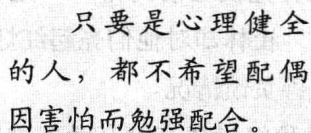 只要是心理健全
的人，都不希望配偶
因害怕而勉强配合。